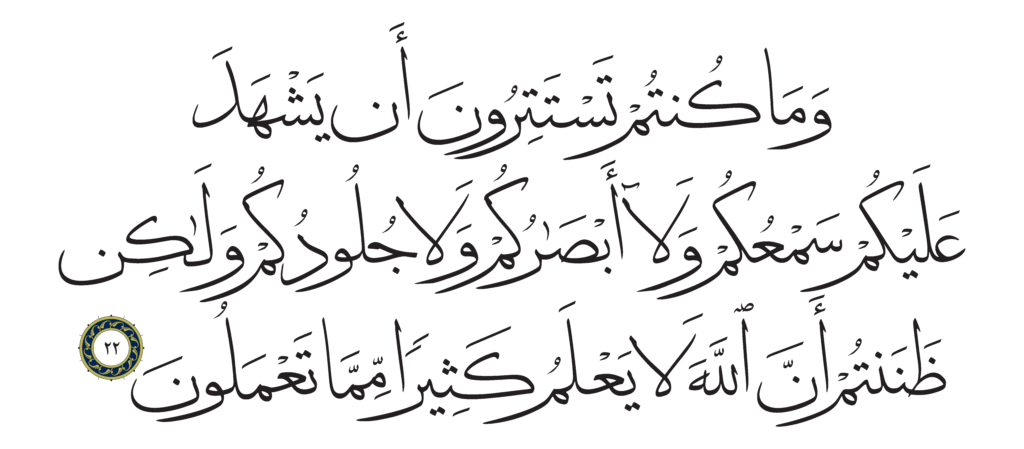 وَمَا كُنتُمْ تَسْتَتِرُونَ أَن يَشْهَدَ
عَلَيْكُمْ سَمْعُكُمْ وَلَآ أَبْصَـٰرُكُمْ وَلَا جُلُودُكُمْ وَلَـٰكِن
ظَنَنتُمْ أَنَّ ٱللَّهَ لَا يَعْلَمُ كَثِيرًا مِّمَّا تَعْمَلُونَ ٢٢